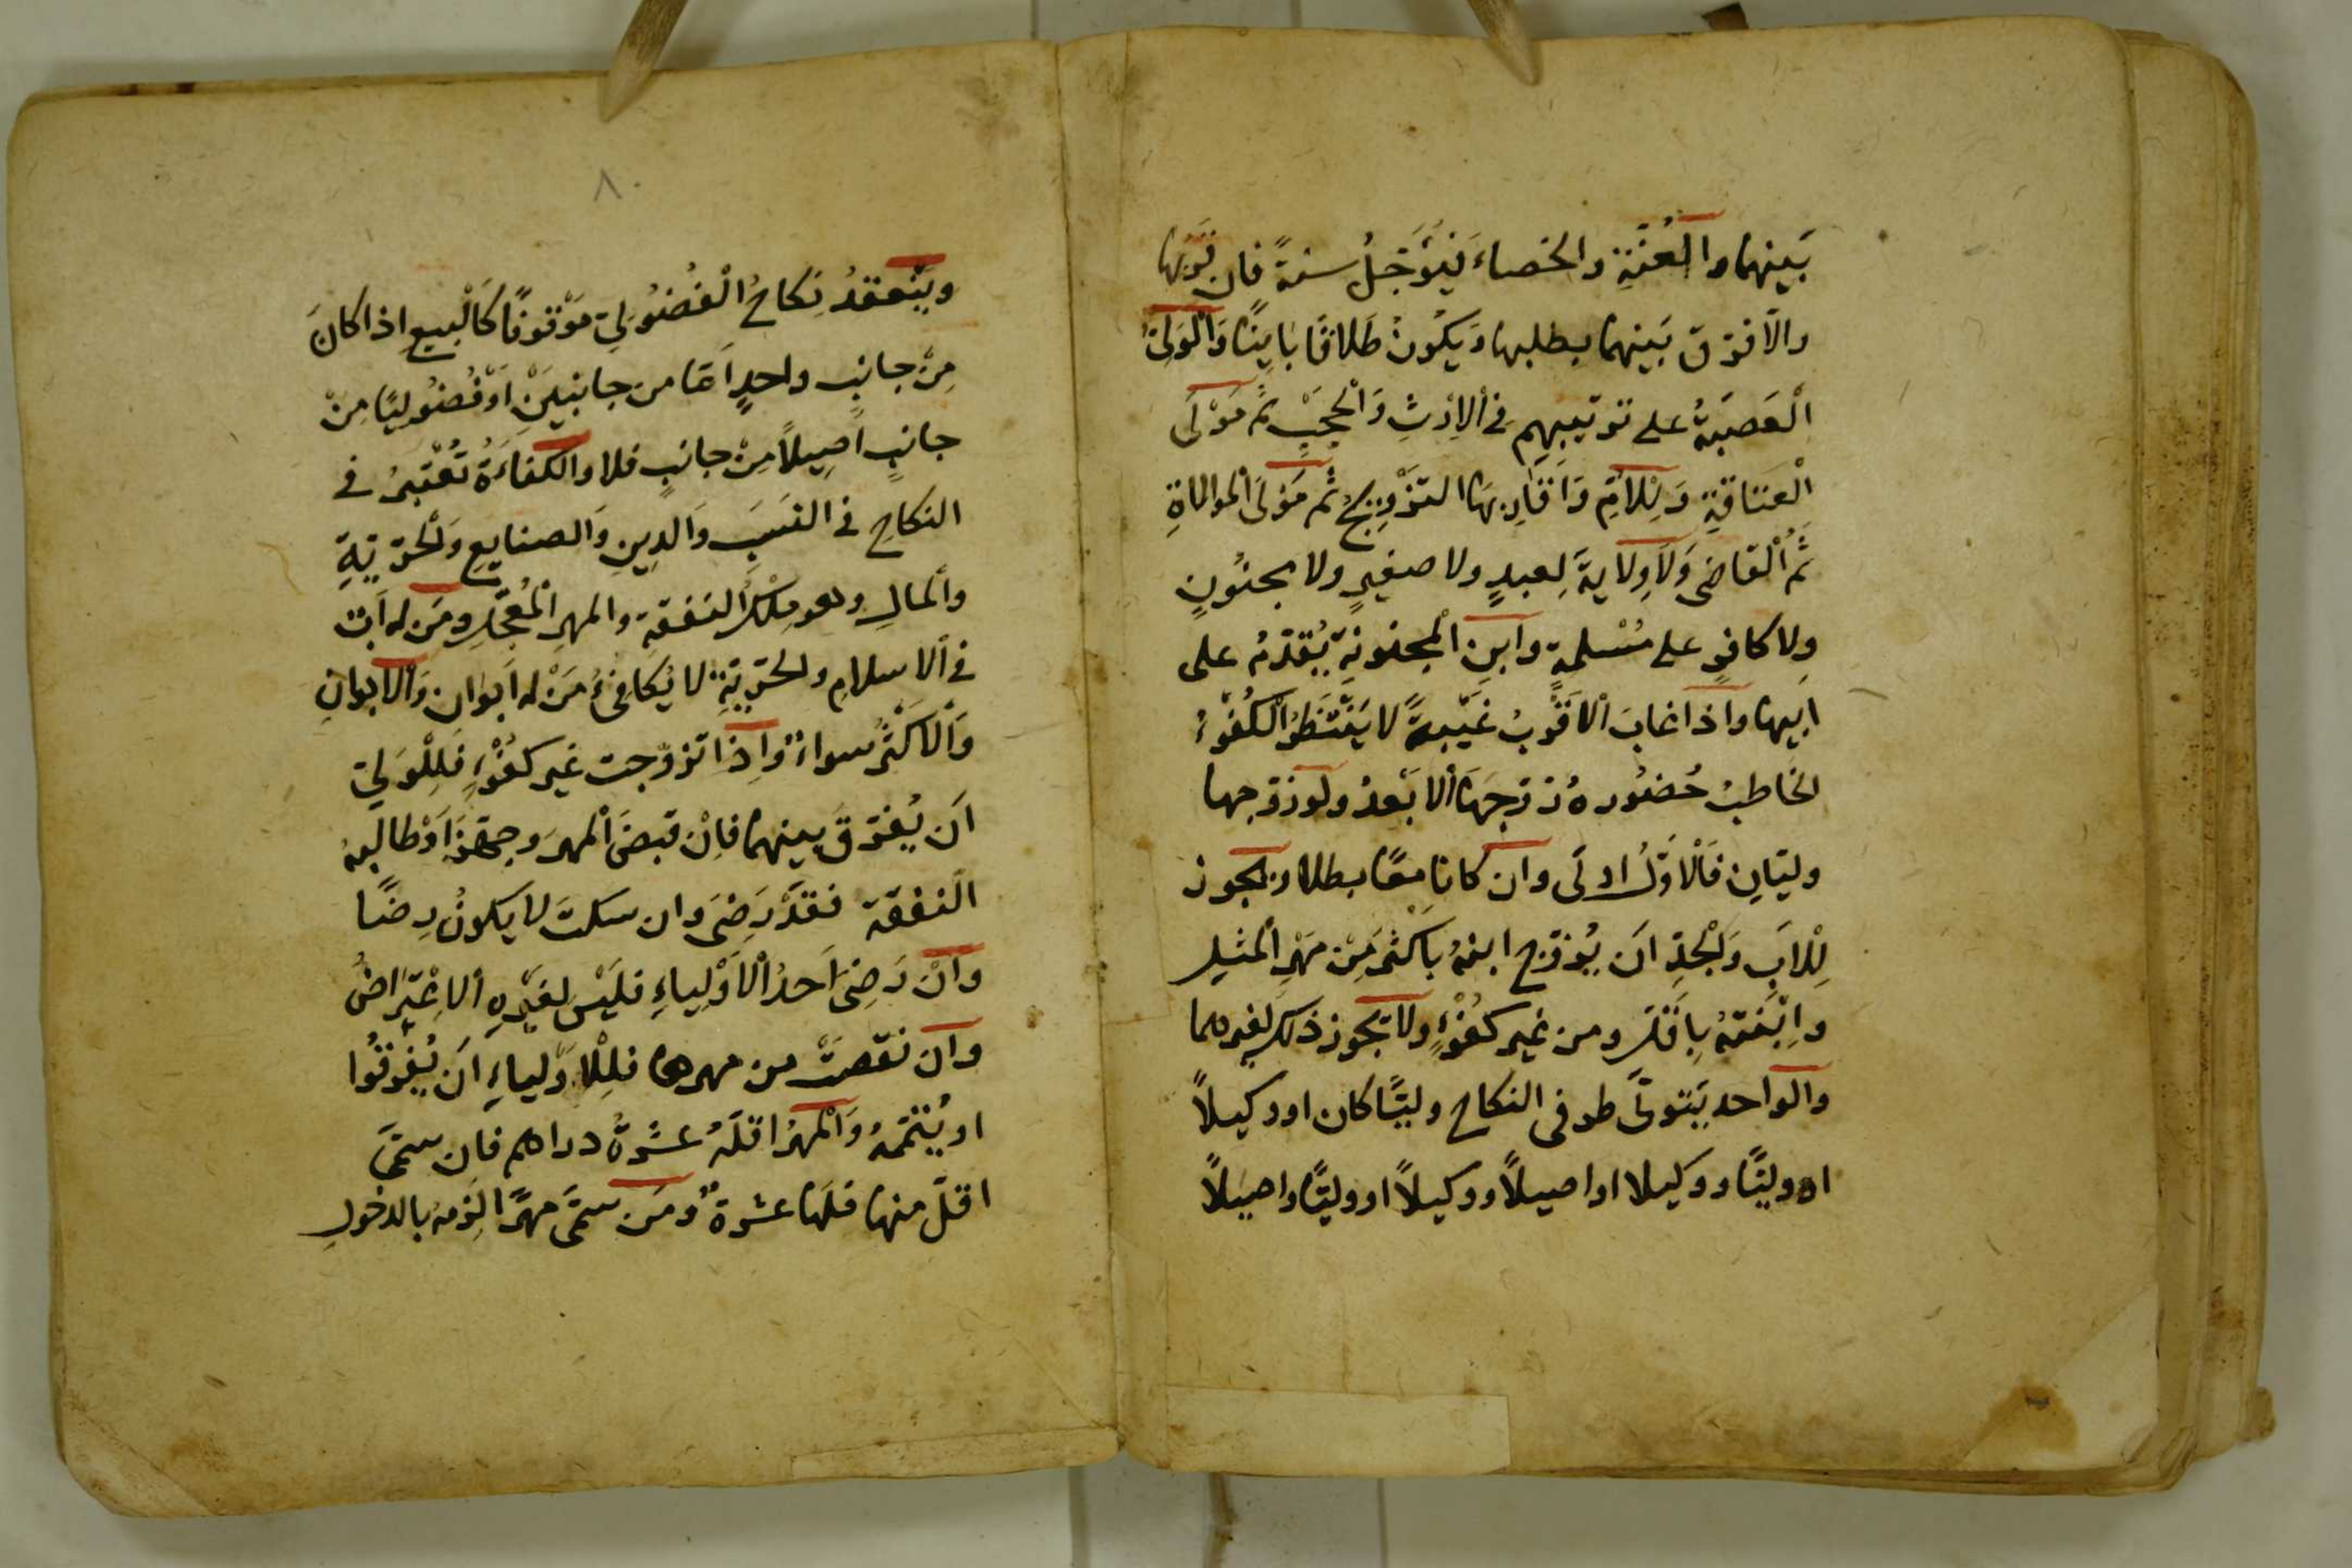 بَينهما والعُنَّةِ والخصاءَ فيُؤَجّلُ سنةً فان قرَبها
والّا فرّق بَينهما بطلبها وَيكُونُ طَلاقًا باينًا وَالْوَلِيُّ
الْعَصَبَةُ على ترتيبهِم في الاِرْثِ وَالْحَجْبِ ثمَّ مَوْلَى
الْعَتَاقَةِ وَلِلْاُمِّ وَاَقَارِبهَا التزْوِيجُ ثُم مَوْلَى الموالاةِ
ثُمَّ الْقاضى وَلَا وِلَايةَ لِعبدٍ ولا صغيرٍ ولا مجنُونٍ
ولا كافرٍ على مُسْلمةٍ وابن الْمجنونةِ يُقدّمُ على
ابيها واذا غابَ الاَقْربُ غَيْبةً لا يَنْتَظرُ الْكُفْوءُ
الخاطبُ حُضُورهُ زوّجَهَا الابَعدُ ولو زوّجها
وليّانِ فَالْاَوّلُ اولَى وان كانا معًا بطلا ويجوز
لِلْابَ وَالْجدِ ان يُزوّج ابنهُ باَكْثرَ مِنْ مَهْرِ المثيل
وابْنتهُ باَقلّ ومن غير كفْوءٍ ولا تجوز ذلك لغيرهما
والواحد يتولَّى طرفى النكاح وليًّا كان او وكيلًا
او وليًّا ووكيلا او اصيلًا ووكيلًا او وليًّا واصيلًا
٨٠
ويَنْعقدُ نِكاحُ الْفُضُولِيّ مَوْقوفًا كَالْبيعِ اذا كانَ
مِنْ جانبٍ واحدٍ اَمّا من جانبيَنْ اَوْ فُضُوليًا مِنْ
جانبٍ اَصِيلًا مِنْ جانبٍ فلا والكفاءَةُ تُعْتبرُ في
النكاحِ في النسَبَ وَالدِينِ وَالصنايعِ وَالْحرّيّةِ
والْمالِ وهو مِلْكُ النفقةِ والمهرِ الْمُعجّلِ ومَن له اَبٌ
في الاسلامِ والحرّيّةِ لا يُكافِىءُ مَنْ له اَبوان وَالابوانِ
وَالاَكْثَرُ سواءٌ وَاِذا تزوّجت غير كفْوءٍ فَلِلْوَليّ
اَن يُفرّق بينهما فاِنْ قبضَ الْمهرَ وجهّزَ اَوْ طالبهُ
النفقة فقدْ رَضِىَ وان سكتَ لا يكونُ رِضًا
وانْ رَضِىَ اَحدُ الْاَوْلِياءِ فلَيْسَ لغَيْرهِ الاِعْتِراضُ
وان نقصَتْ من مهرها فلِلْاَوْلياءِ اَن يُفرّقُوا
او يُتمّهُ وَالْمهرُ اقلّهُ عشَرةُ دراهم فان سمّى
اقلّ منها فلَها عشرةٌ ومَن سمَّى مهرًا لزِمهُ بالدخولِ